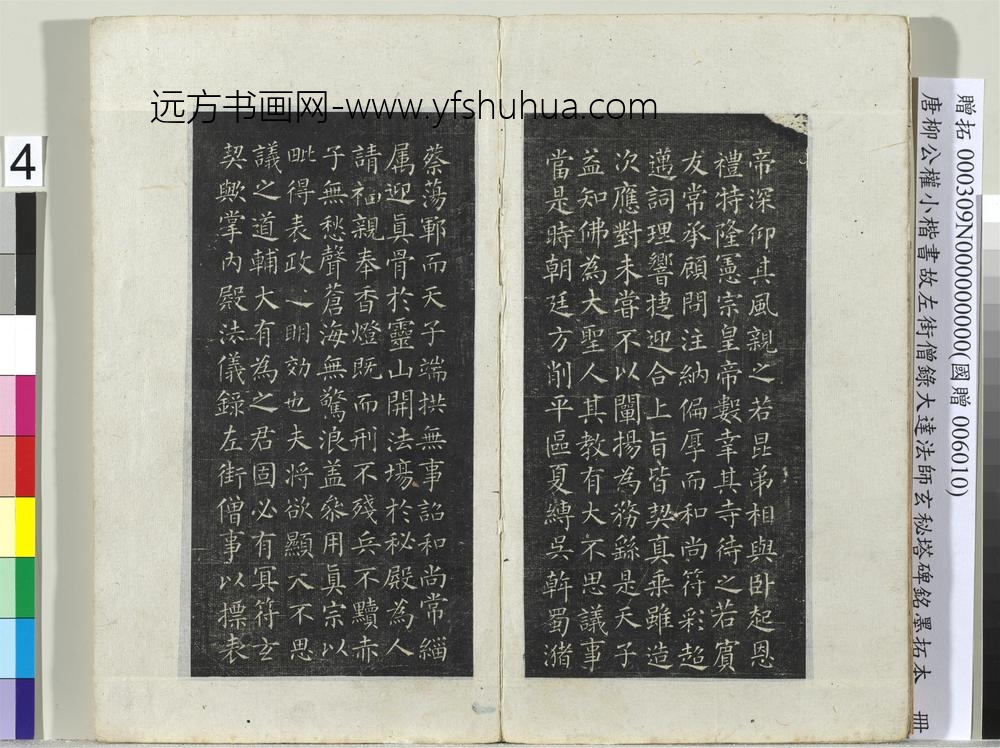 远方书画网-www.yfshuhua.com
4
贈拓 000309N000000000(國贈 006010)
唐柳公權小楷書故左街僧錄大達法師玄秘塔碑銘墨拓本 冊
帝深仰其風親之若昆弟相與臥起恩
禮特隆憲宗皇帝數幸其寺待之若賓
友常承顧問注納偏厚而和尚符彩超
邁詞理響捷迎合上旨皆契真乘雖造
次應對未嘗不以闡揚為務繇是天子
益知佛為大聖人其教有大不思議事
當是時朝廷方削平區夏縛吳斡蜀潴
蔡蕩鄆而天子端拱無事詔和尚常緇
属迎真骨於靈山開法場於秘殿為人
請福親奉香燈既而刑不殘兵不黷赤
子無愁聲蒼海無驚浪盖叅用真宗以
毗得表政之明効也夫將欲顯大不思
議之道輔大有為之君固必有冥符玄
契歟掌內殿法儀錄左街僧事以摽表